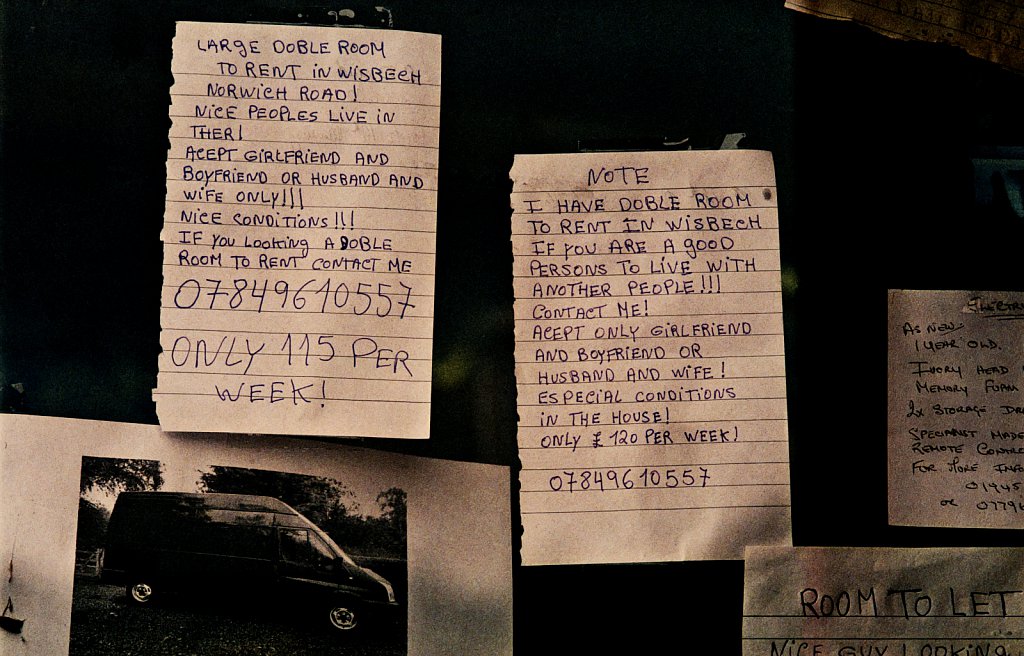 LARGE DOBLE ROOM
TO RENT IN WISBECH
NORWICH ROAD!
NICE PEOPLES LIVE IN
THER!
ACEPT GIRLFRIEND AND
BOYFRIEND OR HUSBAND AND
WIFE ONLY!!!
NICE CONDITIONS!!!
IF YOU LOOTING A DOBLE
ROOM TO RENT CONTACT ME
07849610557
ONLY 115 PER
WEEK!
NOTE
I HAVE DOBLE ROOM
TO RENT IN WISBECH
IF YOU ARE A GOOD
PERSONS TO LIVE WITH
ANOTHER PEOPLE!!!
CONTACT ME!
ACEPT ONLY GIRLFRIEND
AND BOYFRIEND OR
HUSBAND AND WIFE!
ESPECIAL CONDITIONS
IN THE HOUSE!
ONLY £120 PER WEEK!
07849610557
AS NEW
1 YEAR OLD.
IVORY HEAD
MEMORY FOAM
2x STORAGE
SPECIALIST MADE
REMOTE
FOR MORE
01945
OR 0779
ROOM TO LET
NICE GUY LOOKING